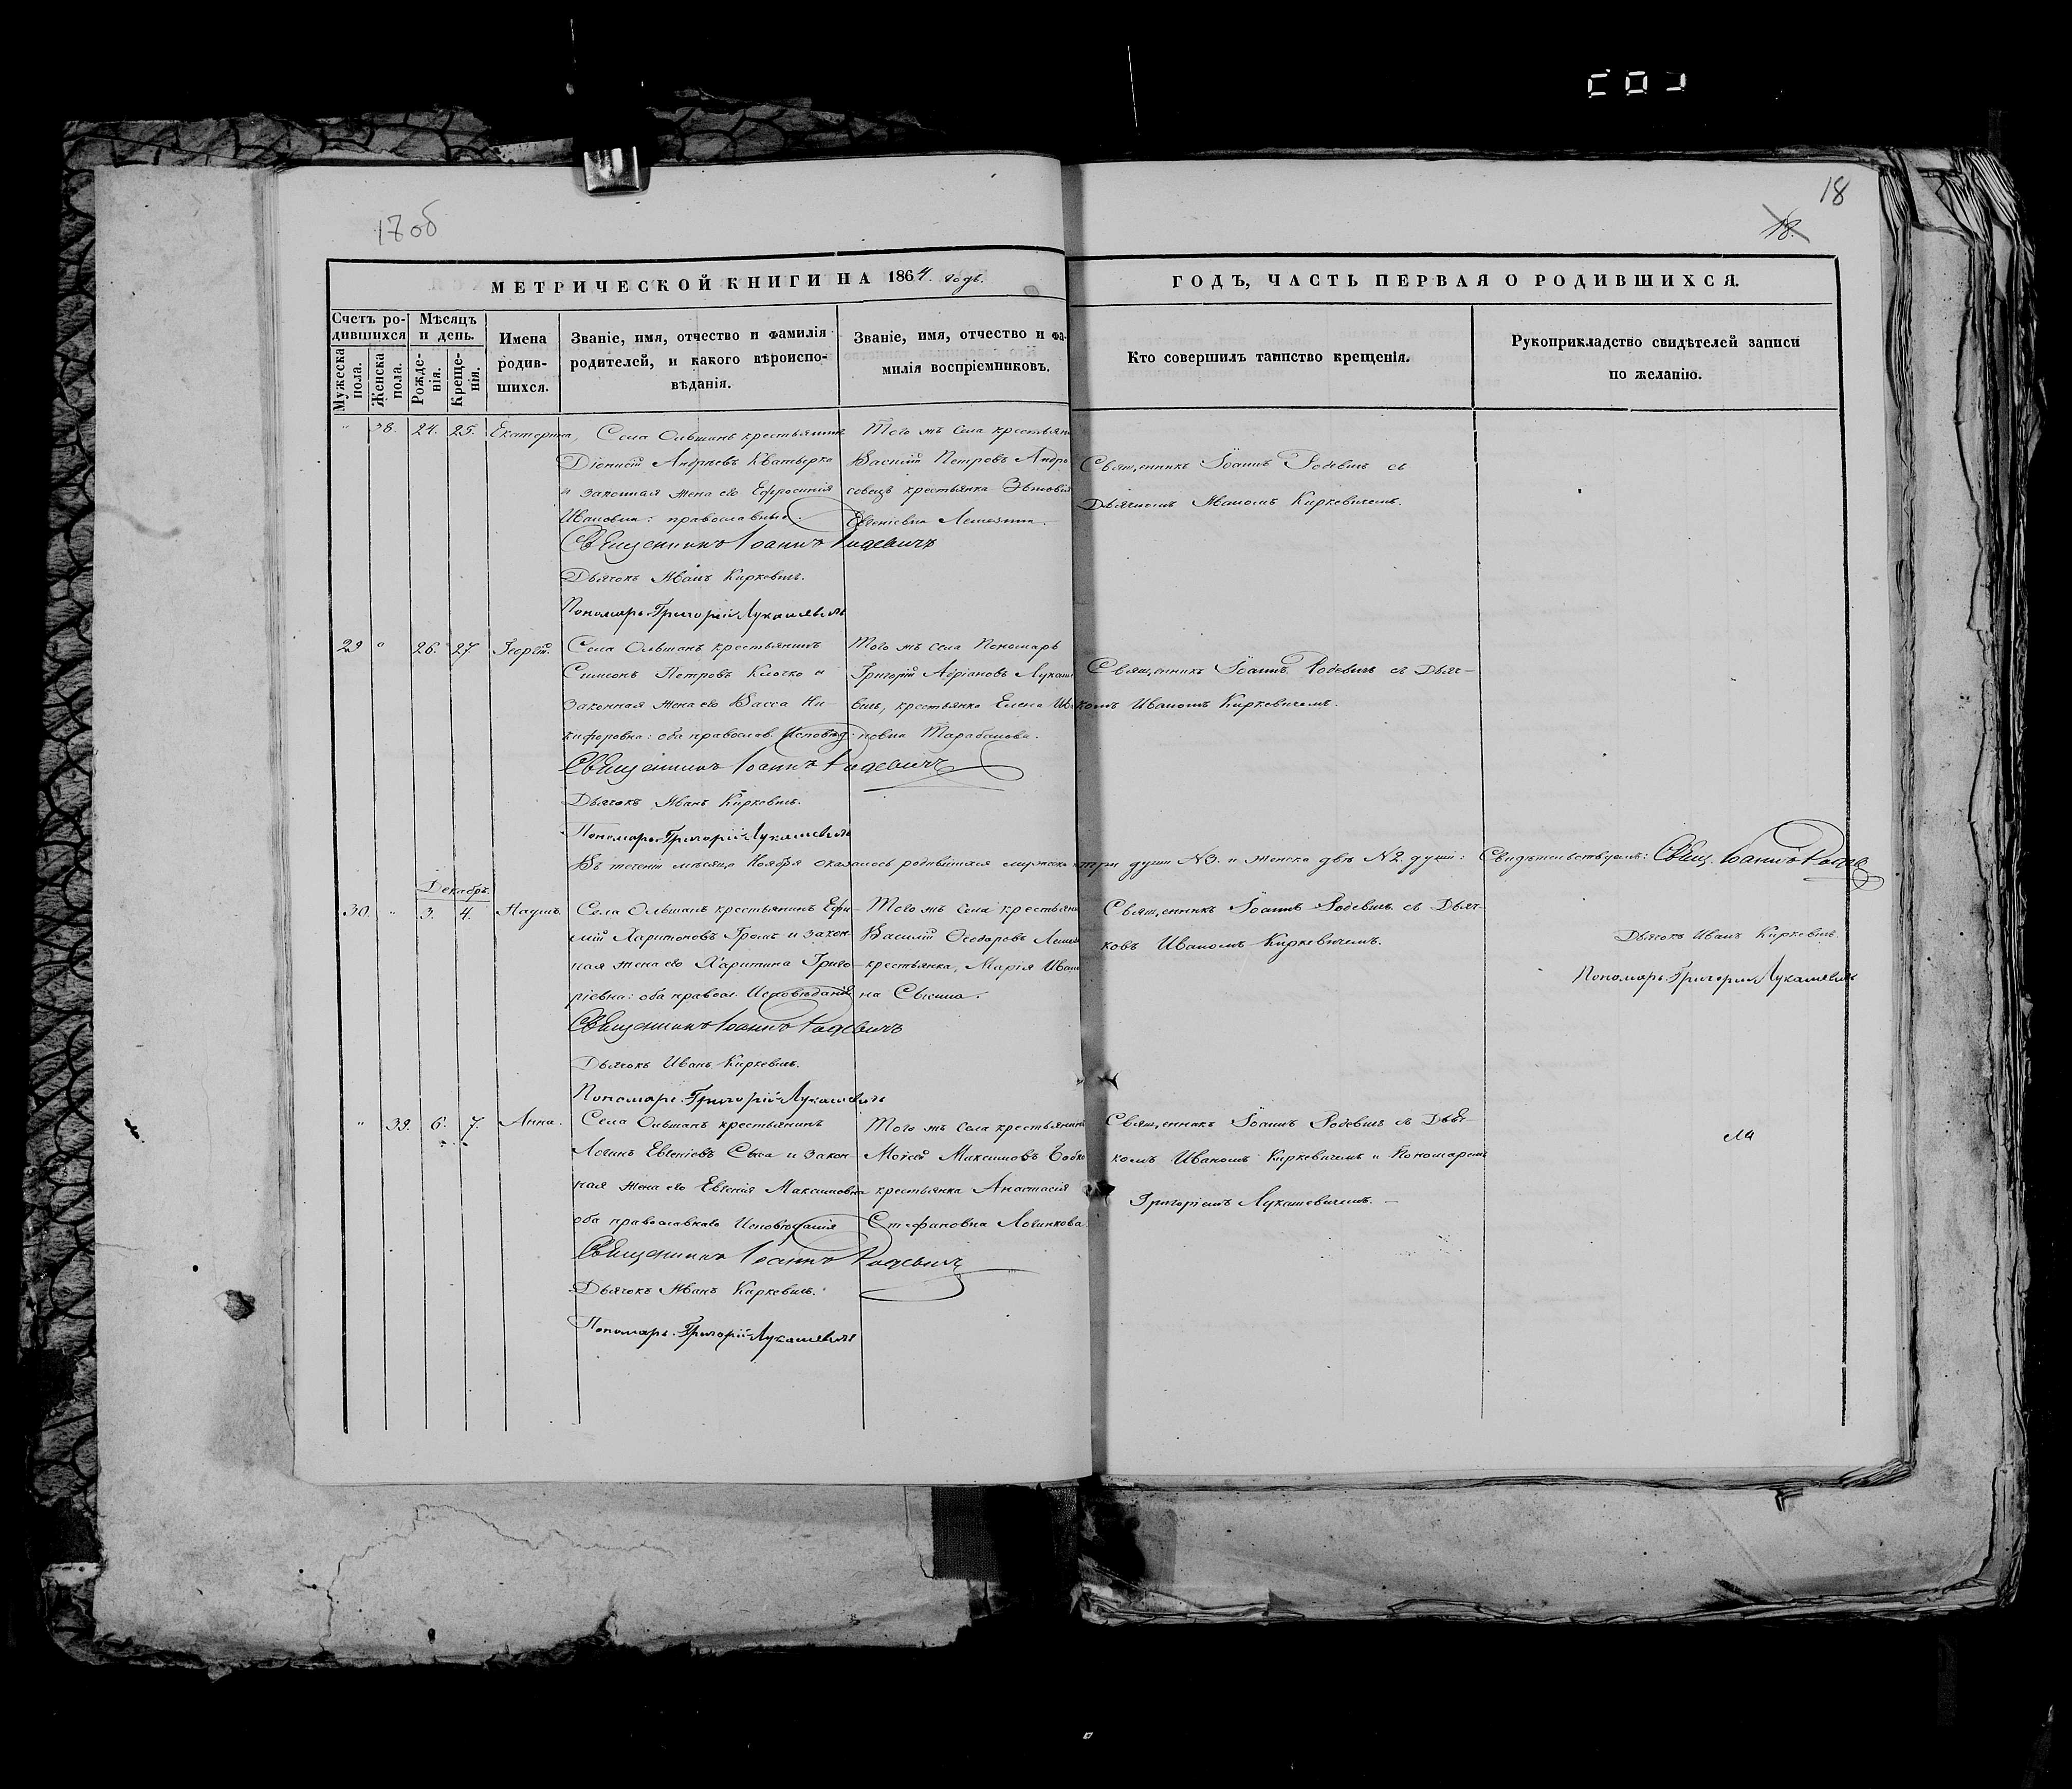 17 об
18
18.
МЕТРИЧЕСКОЙ КНИГИ НА 1864. годъ.
ГОДЪ, ЧАСТЬ ПЕРВАЯ О РОДИВШИХСЯ.
Счетъ ро-
дившихся
Мужеска
пола.
Женска
пола.
Мѣсяцъ
и день.
Рожде-
нія.
Креще-
нія.
Имена
родив-
шихся.
Званіе, имя, отчество и фамилія
родителей, и какого вѣроиспо-
вѣданія.
Званіе, имя, отчество и фа-
милія воспріемниковъ.
Кто совершилъ таинство крещенія.
Рукоприкладство свидѣтелей записи
по желанію.
" 38. 24. 25. Екатерина,
Села Ольшанъ крестьянинъ
Діонисій Андреевъ
и законная жена его Ефросинія
Ивановна: православные.
Священникъ Іоаннъ Родевичъ
Дьячокъ Иванъ Киркевичъ.
Пономарь Григорій Лукашевичъ
Того жъ села крестьян
Василій Петровъ Андро
совецъ крестьянка
Евгеніевна
Священникъ Іоаннъ Родевичъ съ
Дьячкомъ Иваномъ Киркевичемъ.
29 " 26. 27. Георгій.
Села Ольшанъ крестьянинъ
Симеонъ Петровъ Клочко и
законная жена его Васса Ни-
кифоровна: оба православ. Исповѣд.
Священникъ Іоаннъ Родевичъ
Дьячокъ Иванъ Киркевичъ.
Пономарь Григорій Лукашевичъ
Того жъ села Пономарь
Григорій Адріановъ Лукаше
вичъ, крестьянка Елена Ива
новна Тарабанова.
Священникъ Іоаннъ Родевичъ съ Дьяч-
комъ Иваномъ Киркевичемъ.
Въ теченіи мѣсяца Ноября оказалось родившихся мужеска три души №3. и женска двѣ №2. души: Свидѣтельствуемъ: Свящ. Іоаннъ Родев
Дьячокъ Иванъ Киркевичъ.
Пономарь Григорій Лукашевичъ
Декабрь.
30. " 3. 4. Наумъ.
Села Ольшанъ крестьянинъ Ефи-
мій Харитоновъ Громъ и закон-
ная жена его Харитина Григо-
ріевна: оба правосл. Исповѣданія
Священникъ Іоаннъ Родевичъ
Дьячокъ Иванъ Киркевичъ.
Пономарь Григорій Лукашевичъ
Того жъ села крестьян
Василій Ѳеодоровъ
крестьянка, Марія Иван
на
Священникъ Іоаннъ Родевичъ съ Дьяч-
ковъ Иваномъ Киркевичемъ.
" 39. 6. 7. Анна.
Села Ольшанъ крестьянинъ
Логинъ Евгеніевъ Сыса и закон-
ная жена его Евгенія Максимовна
оба православнаго Исповѣданія
Священникъ Іоаннъ Родевичъ
Дьячокъ Иванъ Киркевичъ.
Пономарь Григорій Лукашевичъ
Того жъ села крестьянинъ
Моѵсей Максимовъ Бобко
крестьянка Анастасія
Стефановна Логинкова
Священникъ Іоаннъ Родевичъ съ Дьяч-
комъ Иваномъ Киркевичемъ и Пономаремъ
Григоріемъ Лукашевичемъ.